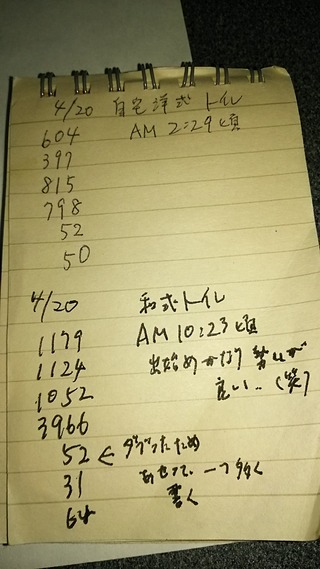 4/20 自宅洋式トイレ
604 AM 2:29頃
397
815
798
52
50
4/20 和式トイレ
1179 AM 10:23頃
1124 出始めかなり勢いが
1052 良い..(笑)
3966
52 ← ダブったため
31 あせって、一つ多く
64 書く